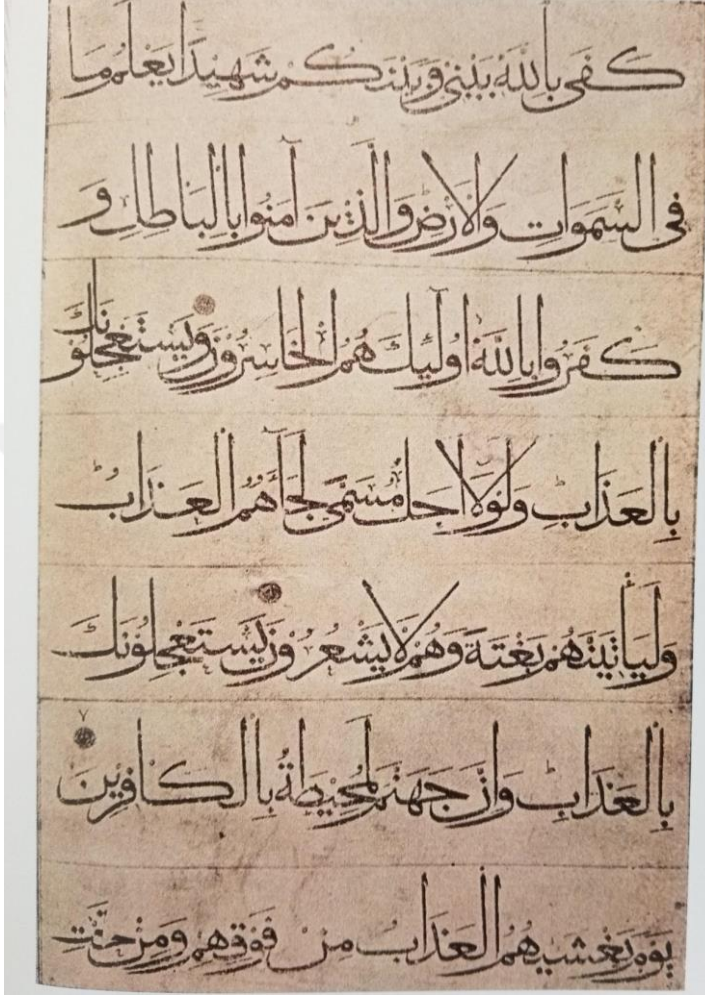 كَفَى بِاللَّهِ بَيْنِي وَبَيْنَكُمْ شَهِيدًا يَعْلَمُ مَا
فِي السَّمَوَاتِ وَالْأَرْضِ وَالَّذِينَ آمَنُوا بِالْبَاطِلِ وَ
كَفَرُوا بِاللَّهِ أُولَئِكَ هُمُ الْخَاسِرُونَ وَيَسْتَعْجِلُونَكَ
بِالْعَذَابِ وَلَوْلَا أَجَلٌ مُسَمًّى لَجَاءَهُمُ الْعَذَابُ
وَلَيَأْتِيَنَّهُمْ بَغْتَةً وَهُمْ لَا يَشْعُرُونَ يَسْتَعْجِلُونَكَ
٧
بِالْعَذَابِ وَإِنَّ جَهَنَّمَ لَمُحِيطَةٌ بِالْكَافِرِينَ
يَوْمَ يَغْشَيهُمُ الْعَذَابُ مِنْ فَوْقِهِمْ وَمِنْ تَحْتِ